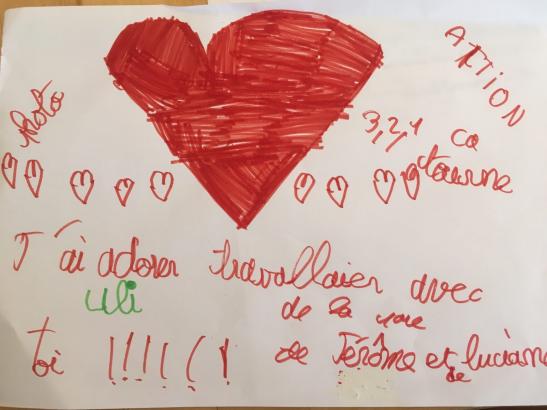 ACTION
Photo
3, 2, 1 ca
tourne
J'ai adorer travallaier avec
uli
toi !!!!!!
de la
de Jérôme et luciano
de